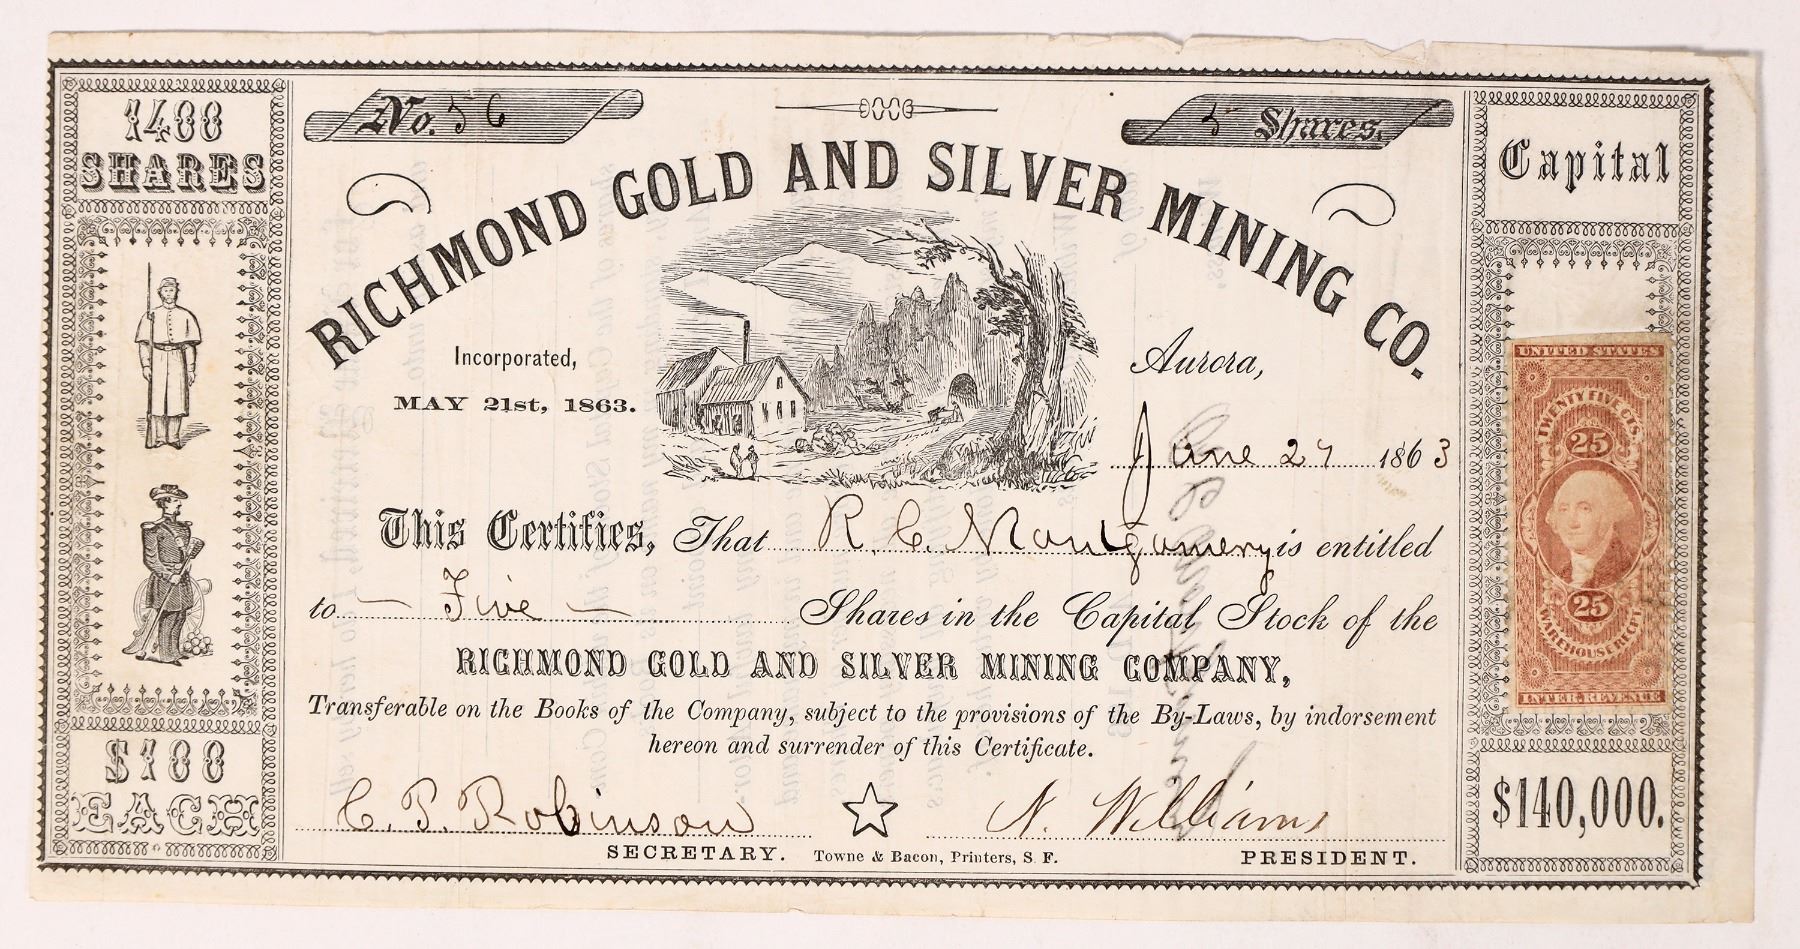 1400
SHARES
$100
EACH
No. 56
5 Shares.
RICHMOND GOLD AND SILVER MINING CO.
Incorporated,
MAY 21st, 1863.
Aurora,
June 27 1863
This Certifies, That R. C. Montgomery is entitled
to — Five — Shares in the Capital Stock of the
RICHMOND GOLD AND SILVER MINING COMPANY,
Transferable on the Books of the Company, subject to the provisions of the By-Laws, by indorsement
hereon and surrender of this Certificate.
C. P. Robinson
N. Williams
SECRETARY. Towne & Bacon, Printers, S. F. PRESIDENT.
Capital
UNITED STATES
TWENTY FIVE CTS.
25
25
WAREHOUSE RECPT.
INTER. REVENUE
$140,000.